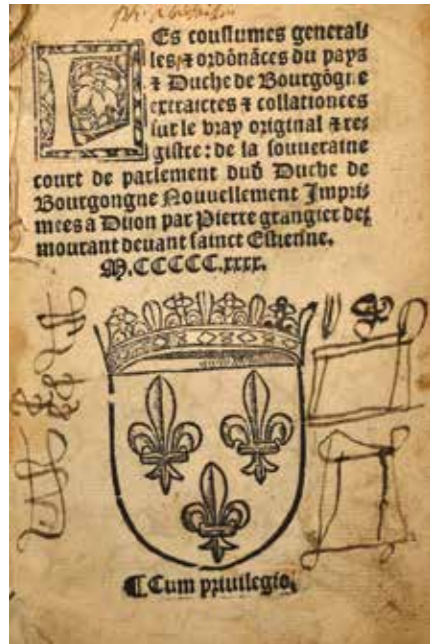 LEs coustumes general-
les, ⁊ ordōnāces du pays
⁊ Duche de Bourgōgne
extraictes ⁊ collationees
sur le vray original ⁊ re-
gistre: de la souueraine
court de parlement dud Duche de
Bourgongne Nouuellement Impri-
mees a Diion par Pierre grangier de-
mourant deuant sainct Estienne.
M.CCCCC.xxxx.
¶Cum priuilegio.